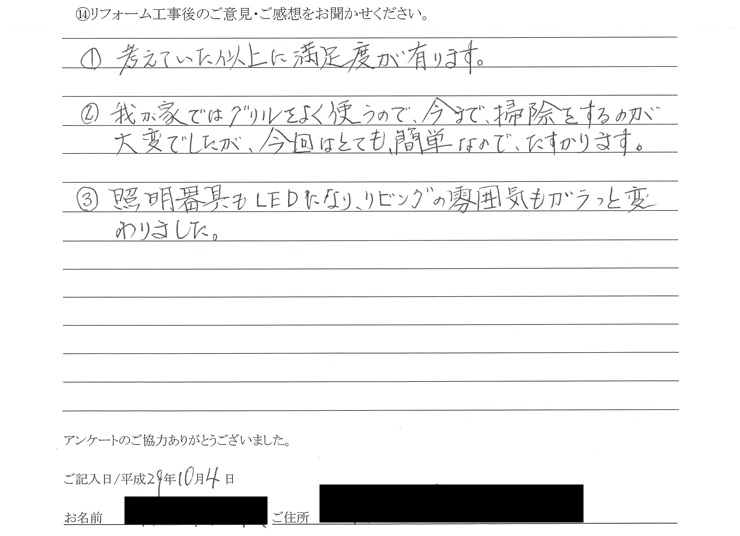 ⑭リフォーム工事後のご意見・ご感想をお聞かせください。
① 考えていた以上に満足度が有ります。
② 我が家ではグリルをよく使うので、今まで、掃除をするのが
大変でしたが、今回はとても、簡単なので、たすかります。
③ 照明器具もLEDになり、リビングの雰囲気もガラっと変
わりました。
アンケートのご協力ありがとうございました。
ご記入日/平成29年10月4日
お名前 ご住所